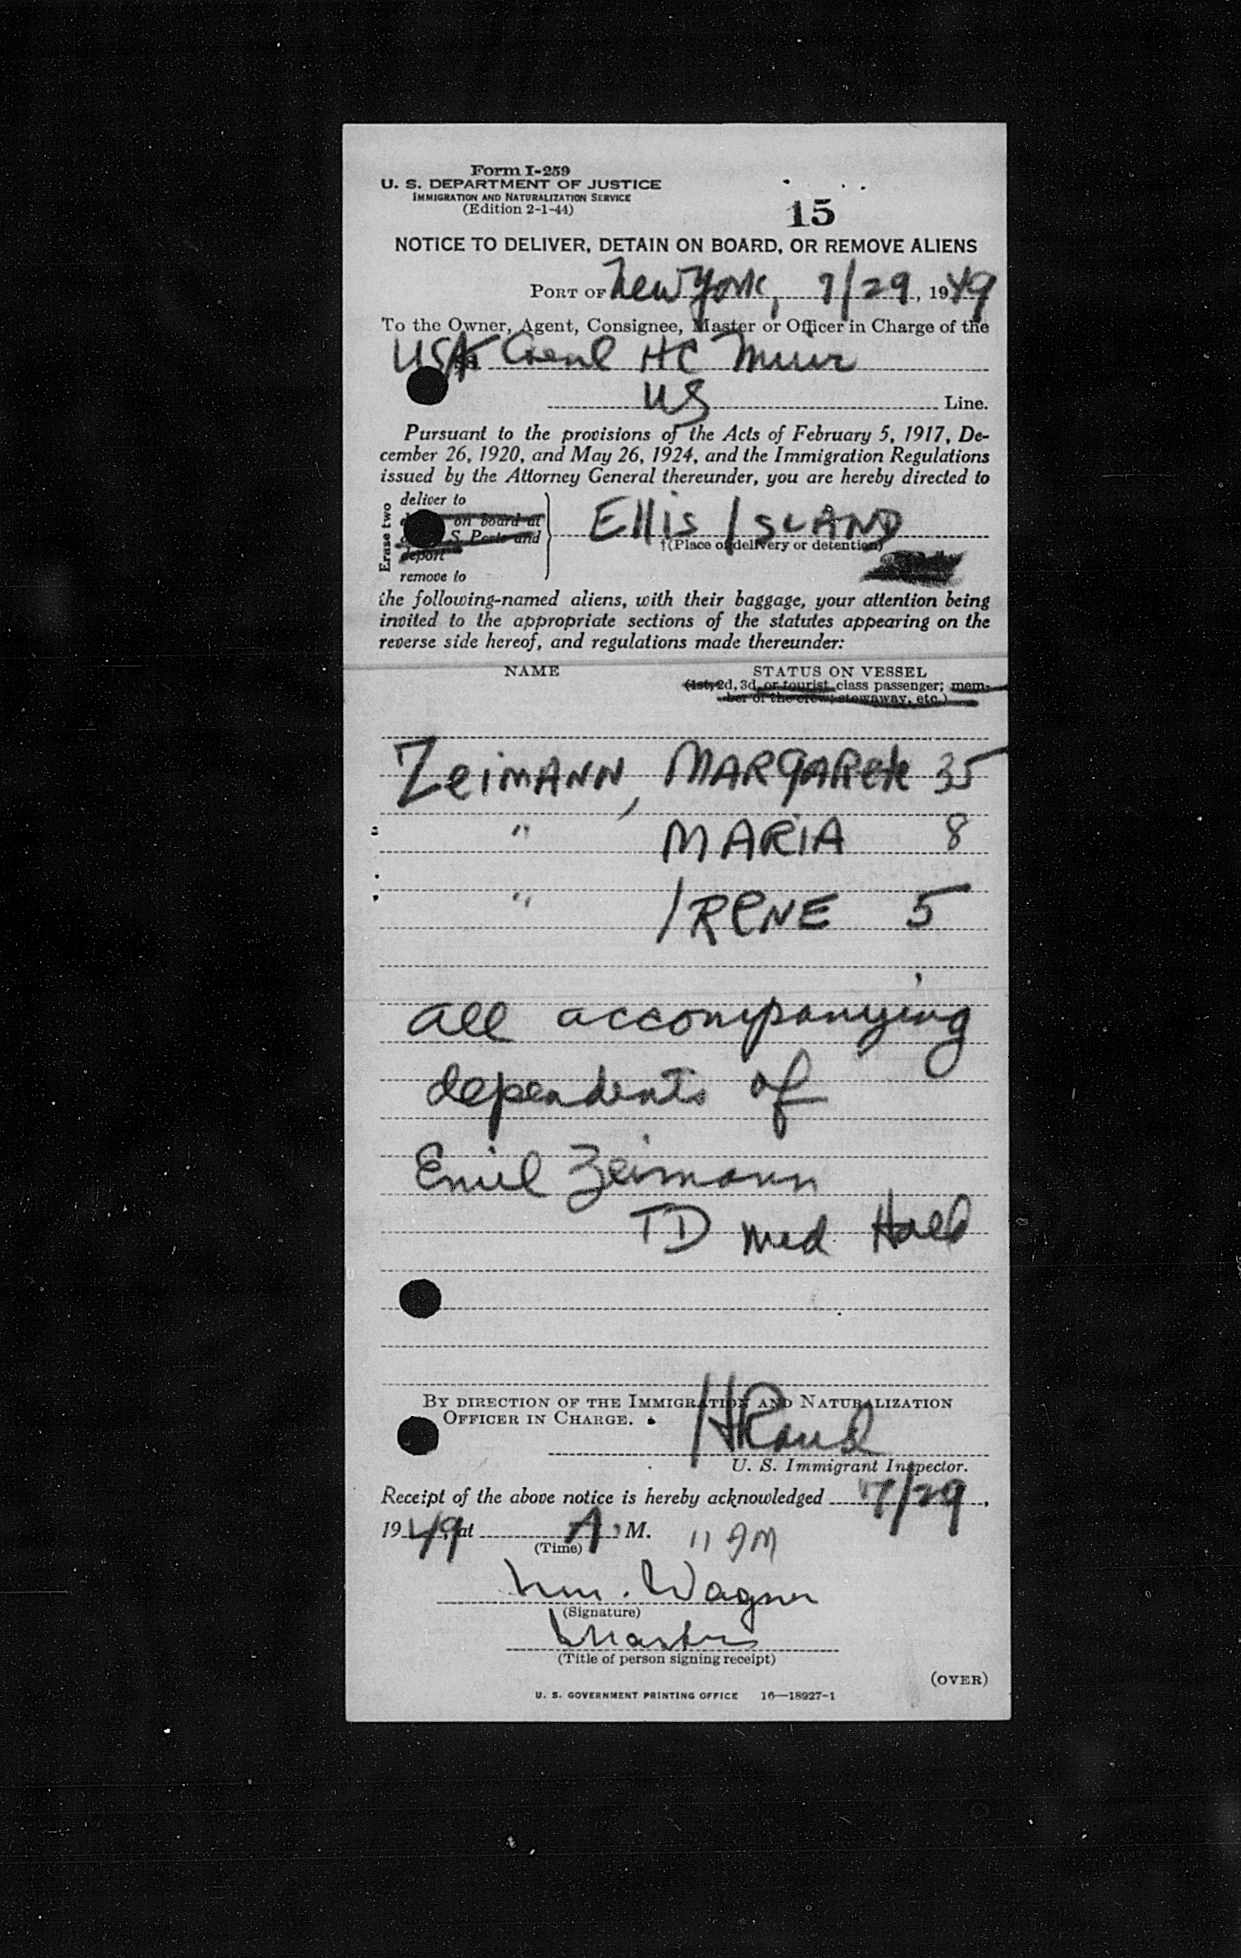 Form I-259
U. S. DEPARTMENT OF JUSTICE
IMMIGRATION AND NATURALIZATION SERVICE
(Edition 2-1-44)
15
NOTICE TO DELIVER, DETAIN ON BOARD, OR REMOVE ALIENS
PORT OF New York, 7/29, 1949
To the Owner, Agent, Consignee, Master or Officer in Charge of the
USAT Genl HC Muir
US Line.
Pursuant to the provisions of the Acts of February 5, 1917, De-
cember 26, 1920, and May 26, 1924, and the Immigration Regulations
issued by the Attorney General thereunder, you are hereby directed to
Erase two
deliver to
on board at
S. Ports and
deport
remove to
Ellis ISLAND
†(Place of delivery or detention)
the following-named aliens, with their baggage, your attention being
invited to the appropriate sections of the statutes appearing on the
reverse side hereof, and regulations made thereunder:
NAME STATUS ON VESSEL
(1st, 2d, 3d, or tourist class passenger; mem-
ber of the crew; stowaway, etc.)
ZeimANN, MARGARete 35
" MARiA 8
" IReNE 5
all accompanying
dependents of
Emil Zeimann
TD med Hold
BY DIRECTION OF THE IMMIGRATION AND NATURALIZATION
OFFICER IN CHARGE.
U. S. Immigrant Inspector.
Receipt of the above notice is hereby acknowledged 7/29,
1949, at A. M. 11 AM
(Time)
Wm. Wagner
(Signature)
Master
(Title of person signing receipt)
(OVER)
U. S. GOVERNMENT PRINTING OFFICE 16—18927-1